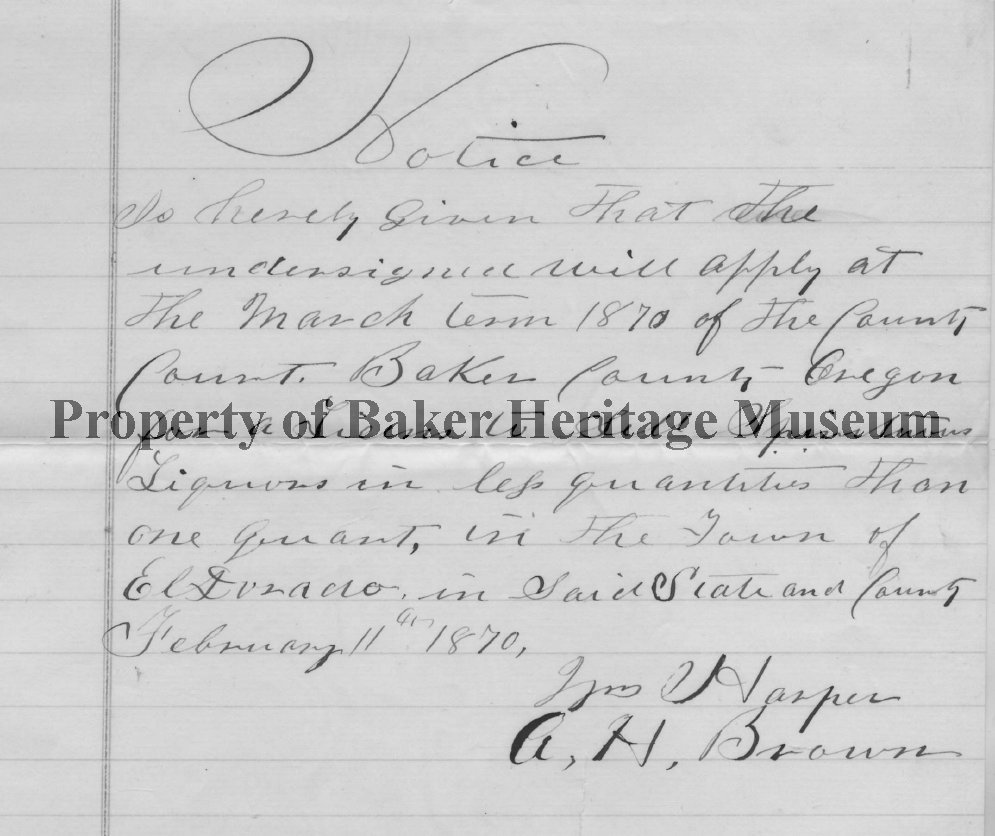 Notice
Is hereby Given That The
undersigned will apply at
the March term 1870 of the County
Court. Baker County Oregon
Property of Baker Heritage Museum
for a License to Sell Spirituous
Liquors in less quantities than
one quart, in the Town of
El Dorado. in Said State and County
February 11th 1870,
Harper
A. H. Brown